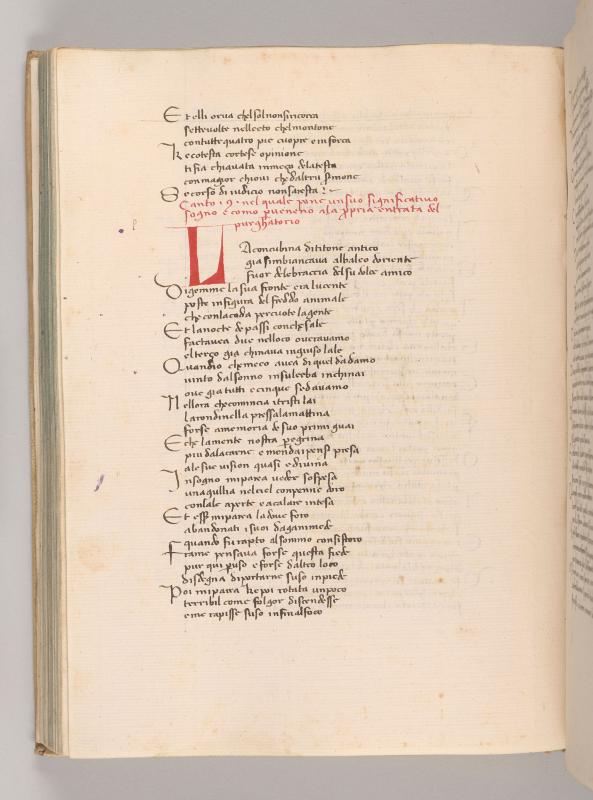 Et elli orva chel sol non si ricorca
sette volte nel lecto chel montone
con tutte quatro pie cuopre e inforca
Ke cotesta cortese opinione
ti fia chiavata in meço dela testa
con magior chiovi che d altrui sermone
Se corso di iudicio non s aresta :~
Canto .19. nel quale pone un suo significativo
sogno e como pervenero a la ppria entrata del
purghatorio
La concubina di titone antico
gia s imbiancava al balco d oriente
fuor dele braccia del su dolce amico
Di gemme la sua fronte era lucente
poste in figura del freddo animale
che con la coda percuote la gente
Et la nocte de passi con che sale
fact avea due nel loco ove ravamo
el terço gia chinava in giuso l ale
Quand io che meco avea di quel d adamo
vinto dal sonno in su l erba inchinai
ove gia tutti e cinque sedavamo
Nell ora che comincia i tristi lai
la rondinella pressa la mattina
forse a memoria de suo primi guai
E che la mente nostra pegrina
piu da la carne e men da i pensi presa
a le sue vision quasi e divina
In sogno mi parea veder sospesa
un aquilia nel ciel con penne d oro
con l ale aperte e a calare intesa
Et esser mi parea la dove foro
abandonati i suoi da ganimede
quando fu rapto al sommo consistoro
Fra me pensava forse questa fiede
pur qui p uso e forse d altro loco
disdegna di portarne suso in piede
Poi mi parea ke poi rotata un poco
terribil come folgor discendesse
e me rapisse suso infin al foco